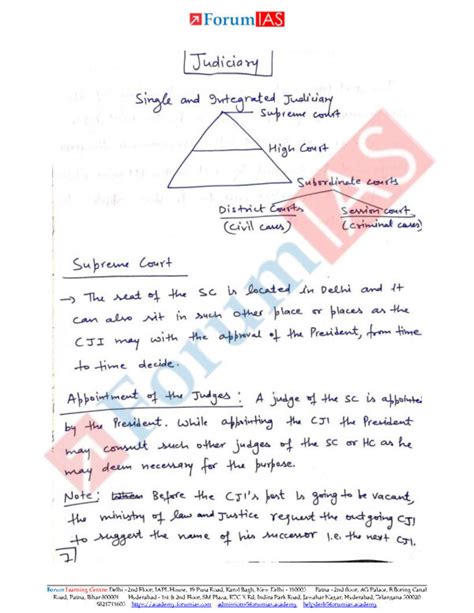 ForumIAS
Judiciary
Single and Integrated Judiciary
Supreme court
High Court
Subordinate courts
District Courts Session court
(Civil cases) (Criminal cases)
Supreme Court
→ The seat of the SC is located in Delhi and it
can also sit in such other place or places as the
CJI may with the approval of the President, from time
to time decide.
Appointment of the Judges: A judge of the SC is appointed
by the President. While appointing the CJI the President
may consult such other judges of the SC or HC as he
may deem necessary for the purpose.
Note: Before the CJI's post is going to be vacant,
the ministry of law and Justice request the outgoing CJI
to suggest the name of his successor i.e. the next CJI.
ForumIAS
Forum Learning Centre: Delhi - 2nd Floor, IAPL House, 19 Pusa Road, Karol Bagh, New Delhi - 110005 Patna - 2nd floor, AG Palace, E Boring Canal
Road, Patna, Bihar 800001 Hyderabad - 1st & 2nd Floor, SM Plaza, RTC X Rd, Indira Park Road, Jawahar Nagar, Hyderabad, Telangana 500020
9821711605 https://academy.forumias.com admissions@forumias.academy helpdesk@forumias.academy